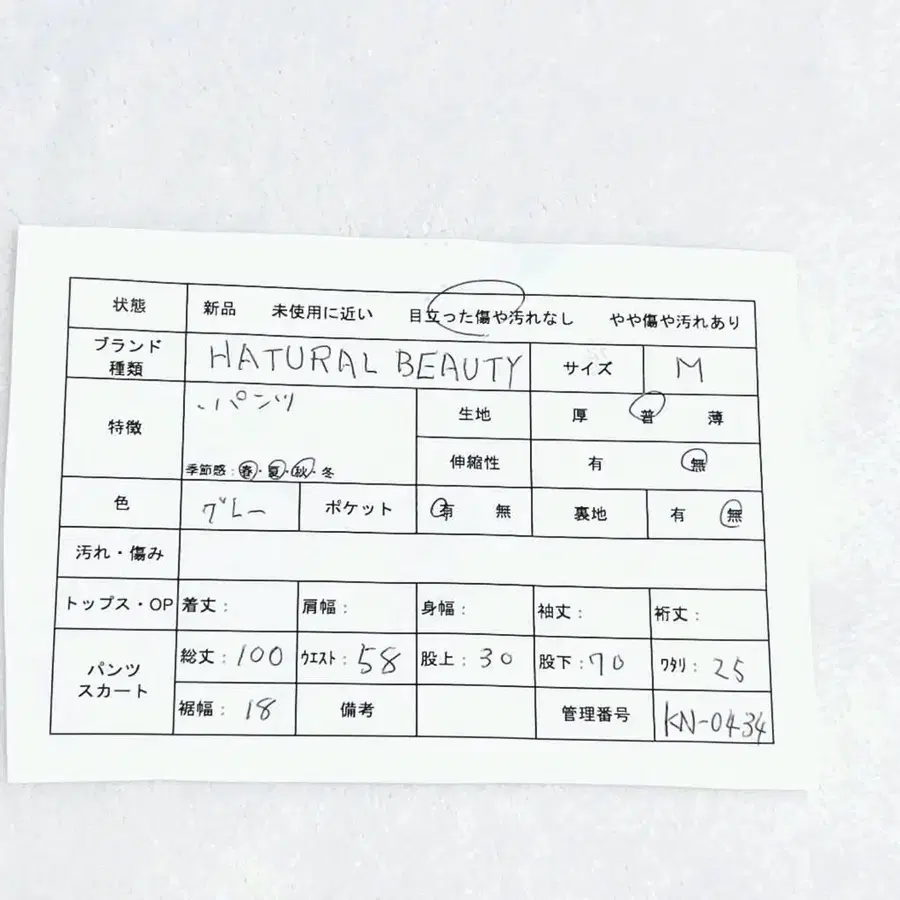 状態 新品 未使用に近い 目立った傷や汚れなし やや傷や汚れあり
ブランド
種類 HATURAL BEAUTY サイズ M
特徴 ・パンツ 生地 厚 普 薄
季節感：春・夏・秋・冬 伸縮性 有 無
色 グレー ポケット 有 無 裏地 有 無
汚れ・傷み
トップス・OP 着丈： 肩幅： 身幅： 袖丈： 裄丈：
パンツ
スカート 総丈：100 ウエスト：58 股上：30 股下：70 ワタリ：25
裾幅：18 備考 管理番号 KN-0434